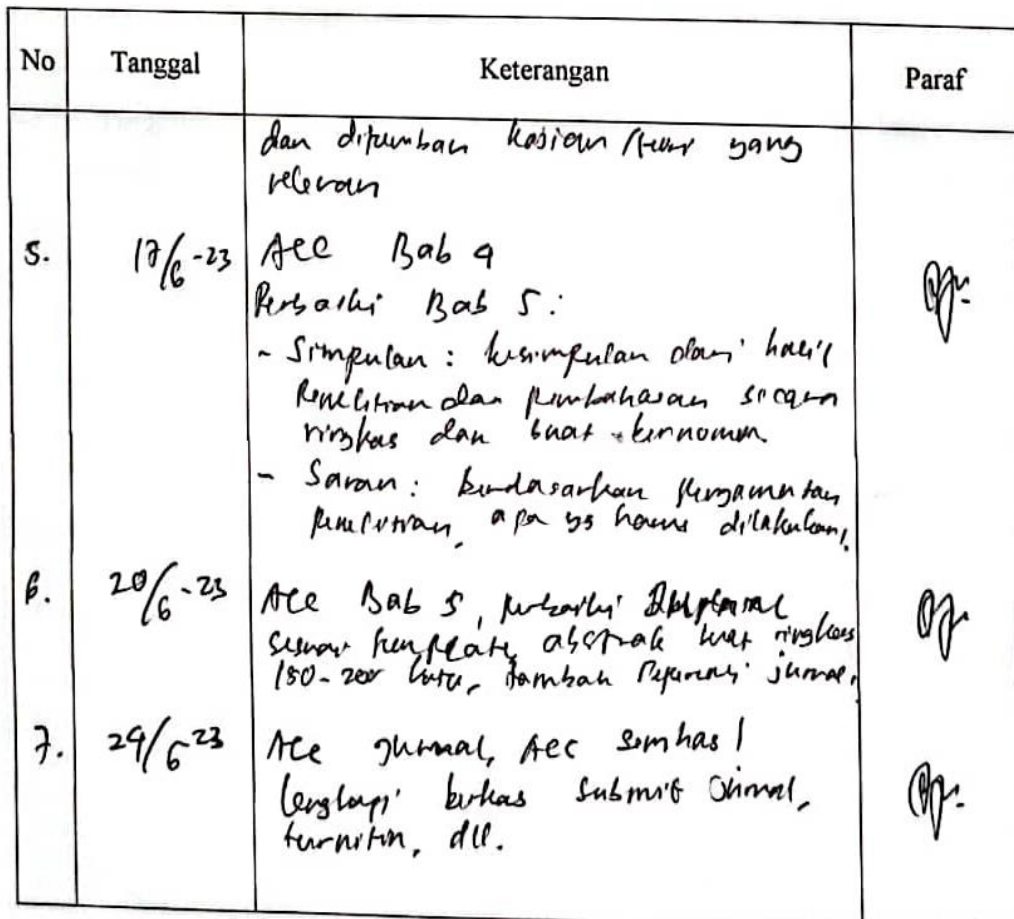 No Tanggal Keterangan Paraf
dan ditambah kajian teori yang
relevan
5. 17/6-23 Acc Bab 4
Perbaiki Bab 5:
- Simpulan : kesimpulan dari hasil
penelitian dan pembahasan secara
ringkas dan buat bernomor.
- Saran : berdasarkan pengamatan
penelitian, apa yg harus dilakukan.
6. 20/6-23 Acc Bab 5, perbaiki
sesuai template, abstrak buat ringkas
150-200 kata, tambah referensi jurnal.
7. 24/6 23 Acc Jurnal, Acc Semhas
lengkapi berkas submit jurnal,
turnitin, dll.